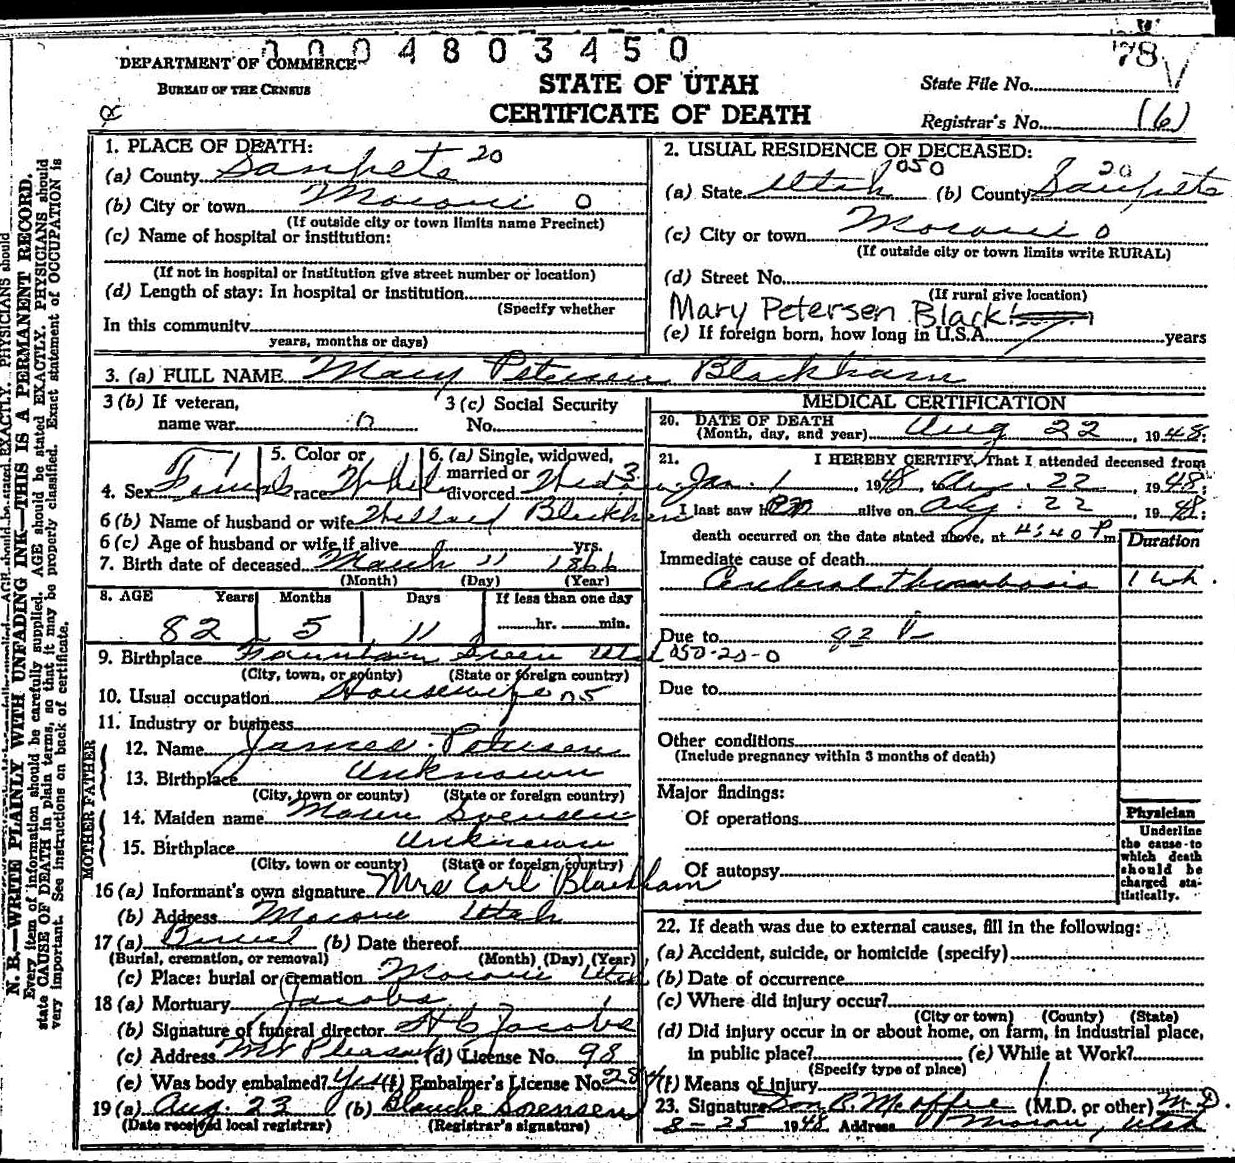 0004803450
DEPARTMENT OF COMMERCE
BUREAU OF THE CENSUS
STATE OF UTAH
CERTIFICATE OF DEATH
78
State File No.
Registrar's No. 16
N. B.—WRITE PLAINLY WITH UNFADING INK—THIS IS A PERMANENT RECORD.
Every item of information should be carefully supplied. AGE should be stated EXACTLY. PHYSICIANS should
state CAUSE OF DEATH in plain terms, so that it may be properly classified. Exact statement of OCCUPATION is
very important. See instructions on back of certificate.
1. PLACE OF DEATH:
(a) County Sanpete 20
(b) City or town Moroni 0
(If outside city or town limits name Precinct)
(c) Name of hospital or institution:
(If not in hospital or institution give street number or location)
(d) Length of stay: In hospital or institution
(Specify whether
In this community
years, months or days)
2. USUAL RESIDENCE OF DECEASED:
(a) State Utah 050 (b) County Sanpete 20
(c) City or town Moroni 0
(If outside city or town limits write RURAL)
(d) Street No.
(If rural give location)
Mary Petersen Black
(e) If foreign born, how long in U.S.A. years
3. (a) FULL NAME Mary Petersen Blackham
3 (b) If veteran,
name war 0
3 (c) Social Security
No.
4. Sex Female 1
5. Color or
race White
6. (a) Single, widowed,
married or
divorced Wid 3
6 (b) Name of husband or wife Willard Blackham
6 (c) Age of husband or wife if alive yrs.
7. Birth date of deceased March 11 1866
(Month) (Day) (Year)
8. AGE Years Months Days If less than one day
82 5 11 hr. min.
9. Birthplace Fountain Green Utah 050-20-0
(City, town, or county) (State or foreign country)
10. Usual occupation Housewife
11. Industry or business
FATHER
12. Name James Petersen
13. Birthplace Unknown
(City, town or county) (State or foreign country)
MOTHER
14. Maiden name Sorensen
15. Birthplace Unknown
(City, town or county) (State or foreign country)
16 (a) Informant's own signature Mrs Earl Blackham
(b) Address Moroni Utah
17 (a) Burial (b) Date thereof
(Burial, cremation, or removal) (Month) (Day) (Year)
(c) Place: burial or cremation Moroni Utah
18 (a) Mortuary Jacobs
(b) Signature of funeral director H C Jacobs
(c) Address Mt Pleasant (d) License No. 98
(e) Was body embalmed? Yes (f) Embalmer's License No. 284
19 (a) Aug. 23 (b) Blanche Sorensen
(Date received local registrar) (Registrar's signature)
MEDICAL CERTIFICATION
20. DATE OF DEATH
(Month, day, and year) Aug 22, 1948;
21. I HEREBY CERTIFY, That I attended deceased from
Jan. 1 1948, to Aug. 22, 1948;
I last saw her alive on Aug. 22, 1948;
death occurred on the date stated above, at 4:40 P m.
Duration
Immediate cause of death
Cerebral thrombosis 1 wk.
Due to
Due to
Other conditions
(Include pregnancy within 3 months of death)
Major findings:
Of operations
Of autopsy
Physician
Underline
the cause to
which death
should be
charged sta-
tistically.
22. If death was due to external causes, fill in the following:
(a) Accident, suicide, or homicide (specify)
(b) Date of occurrence
(c) Where did injury occur?
(City or town) (County) (State)
(d) Did injury occur in or about home, on farm, in industrial place,
in public place? (e) While at Work?
(Specify type of place)
(f) Means of injury
23. Signature (M.D. or other) M.D.
8-25 1948 Address Moroni, Utah